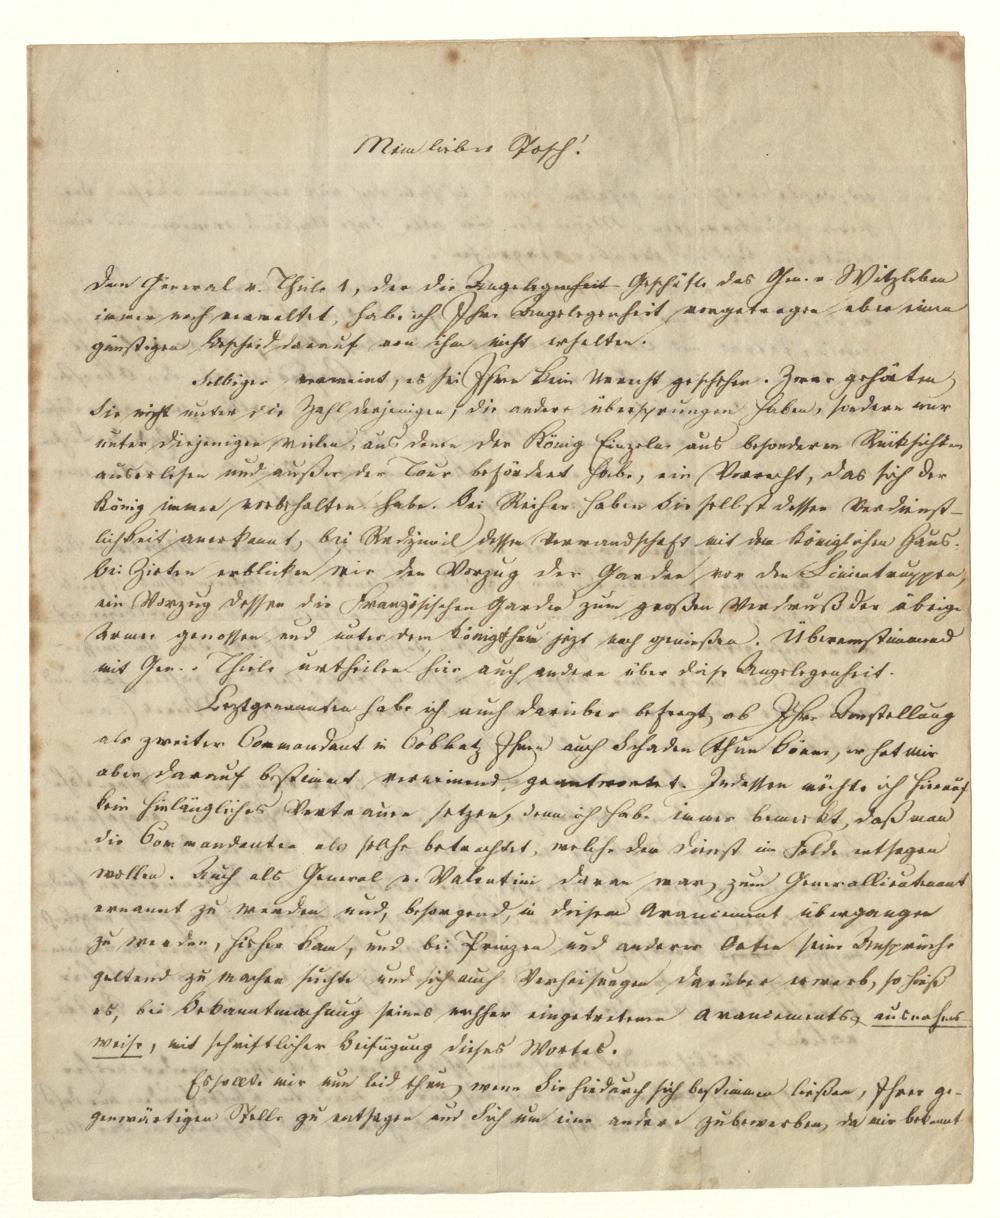 Mein lieber Posch!
Dem General v. Thile 1, der die Angelegenheit Geschäfte des Gen. v. Witzleben
immer noch verwaltet, habe ich Ihre Angelegenheit vorgetragen aber einen
günstigen Bescheid darauf von ihm nicht erhalten.
Selbiger vermeint, es sei Ihnen kein Unrecht geschehen. Zwar gehörten
Sie nicht unter die Zahl derjenigen, die andere übersprungen haben, sondern nur
unter diejenigen vielen, aus denen der König Einzelne aus besonderen Rücksichten
auserlesen und außer der Tour befördert habe, ein Vorrecht, das sich der
König immer vorbehalten habe. Bei Reiher haben Sie selbst dessen Verdienst-
lichkeit anerkannt, bei Radziwil dessen Verwandschaft mit dem Königlichen Hause.
Bei Zieten erblicken wir den Vorzug der Garden vor den Linientruppen,
ein Vorzug dessen die Französischen Garden zum großen Verdruß der übrigen
Armee genossen und unter dem Königthum jezt noch genießen. Übereinstimmend
mit Gen. v. Thile urtheilen hier auch andere über diese Angelegenheit.
Leztgenannten habe ich auch darüber befragt, ob Ihre Anstellung
als zweiter Commandant in Coblenz Ihnen auch Schaden thun könne, er hat mir
aber darauf bestimmt verneinend geantwortet. Indessen möchte ich hierauf
kein hinlängliches Vertrauen setzen, denn ich habe immer bemerkt, daß man
die Commandanten als solche betrachtet, welche dem Dienst im Felde entsagen
wollen. Auch als General v. Valentini daran war, zum Generallieutenant
ernannt zu werden und, besorgend, in diesem Avancement übergangen
zu werden, hieher kam, und bei Prinzen und anderer Orten seine Ansprüche
geltend zu machen suchte und sich auch Verheisungen darüber erwarb, so hieß
es, bei Bekanntmachung seines nachher eingetretenen Avancements, ausnahms-
weise, mit schriftlicher Beifügung dieses Wortes.
Es sollte mir nun leid thun, wenn Sie hiedurch sich bestimmen ließen, Ihrer ge-
genwärtigen Stelle zu entsagen und Sich um eine andere zu bewerben, da mir bekannt